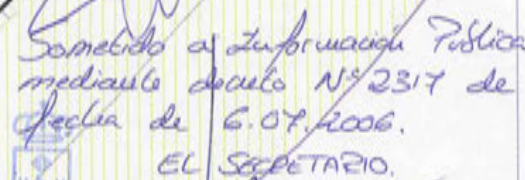 Sometido a Información Pública
mediante decreto Nº 2317 de
fecha de 6.07.2006.
EL SECRETARIO.